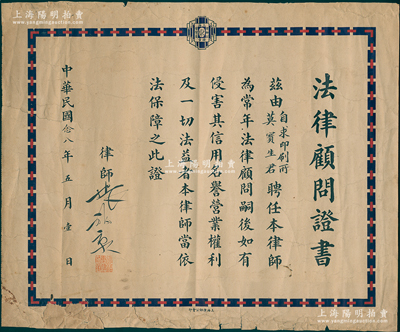 上海陽明拍賣
www.yangmingauction.com
法律顧問證書
茲由自求印刷所莫寶生君聘任本律師
為常年法律顧問嗣後如有
侵害其信用名譽營業權利
及一切法益者本律師當依
法保障之此證
律師
中華民國念八年五月壹日
上海陽明拍賣
www.yangmingauction.com